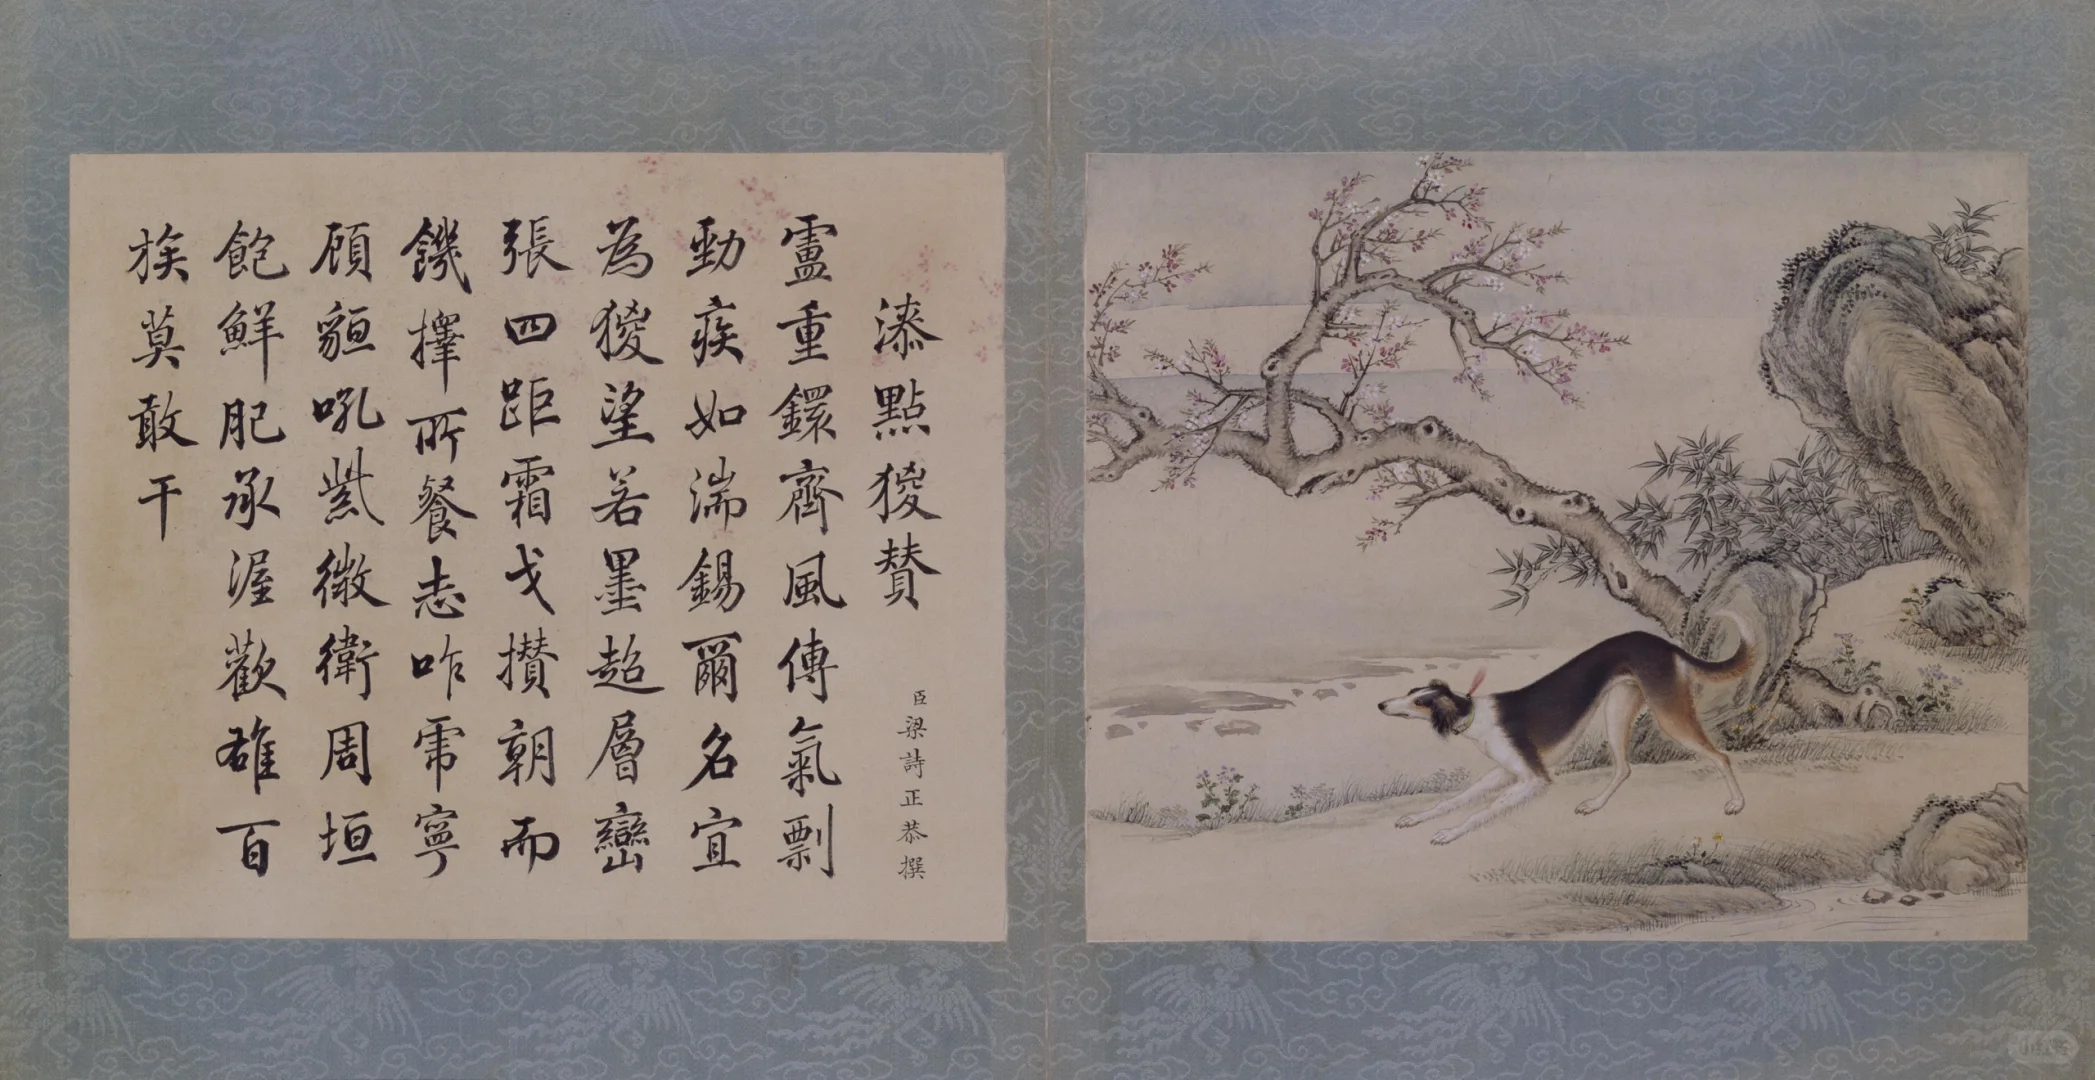 漆點猣贊
臣梁詩正恭撰
盧重鐶齊風傳氣剽
勁疾如湍錫爾名宜
為猣望若墨超層巒
張四距霜戈攢朝而
饑擇所餐志咋帍寧
顧貆吼紫微衛周垣
飽鮮肥承渥歡雄百
族莫敢干